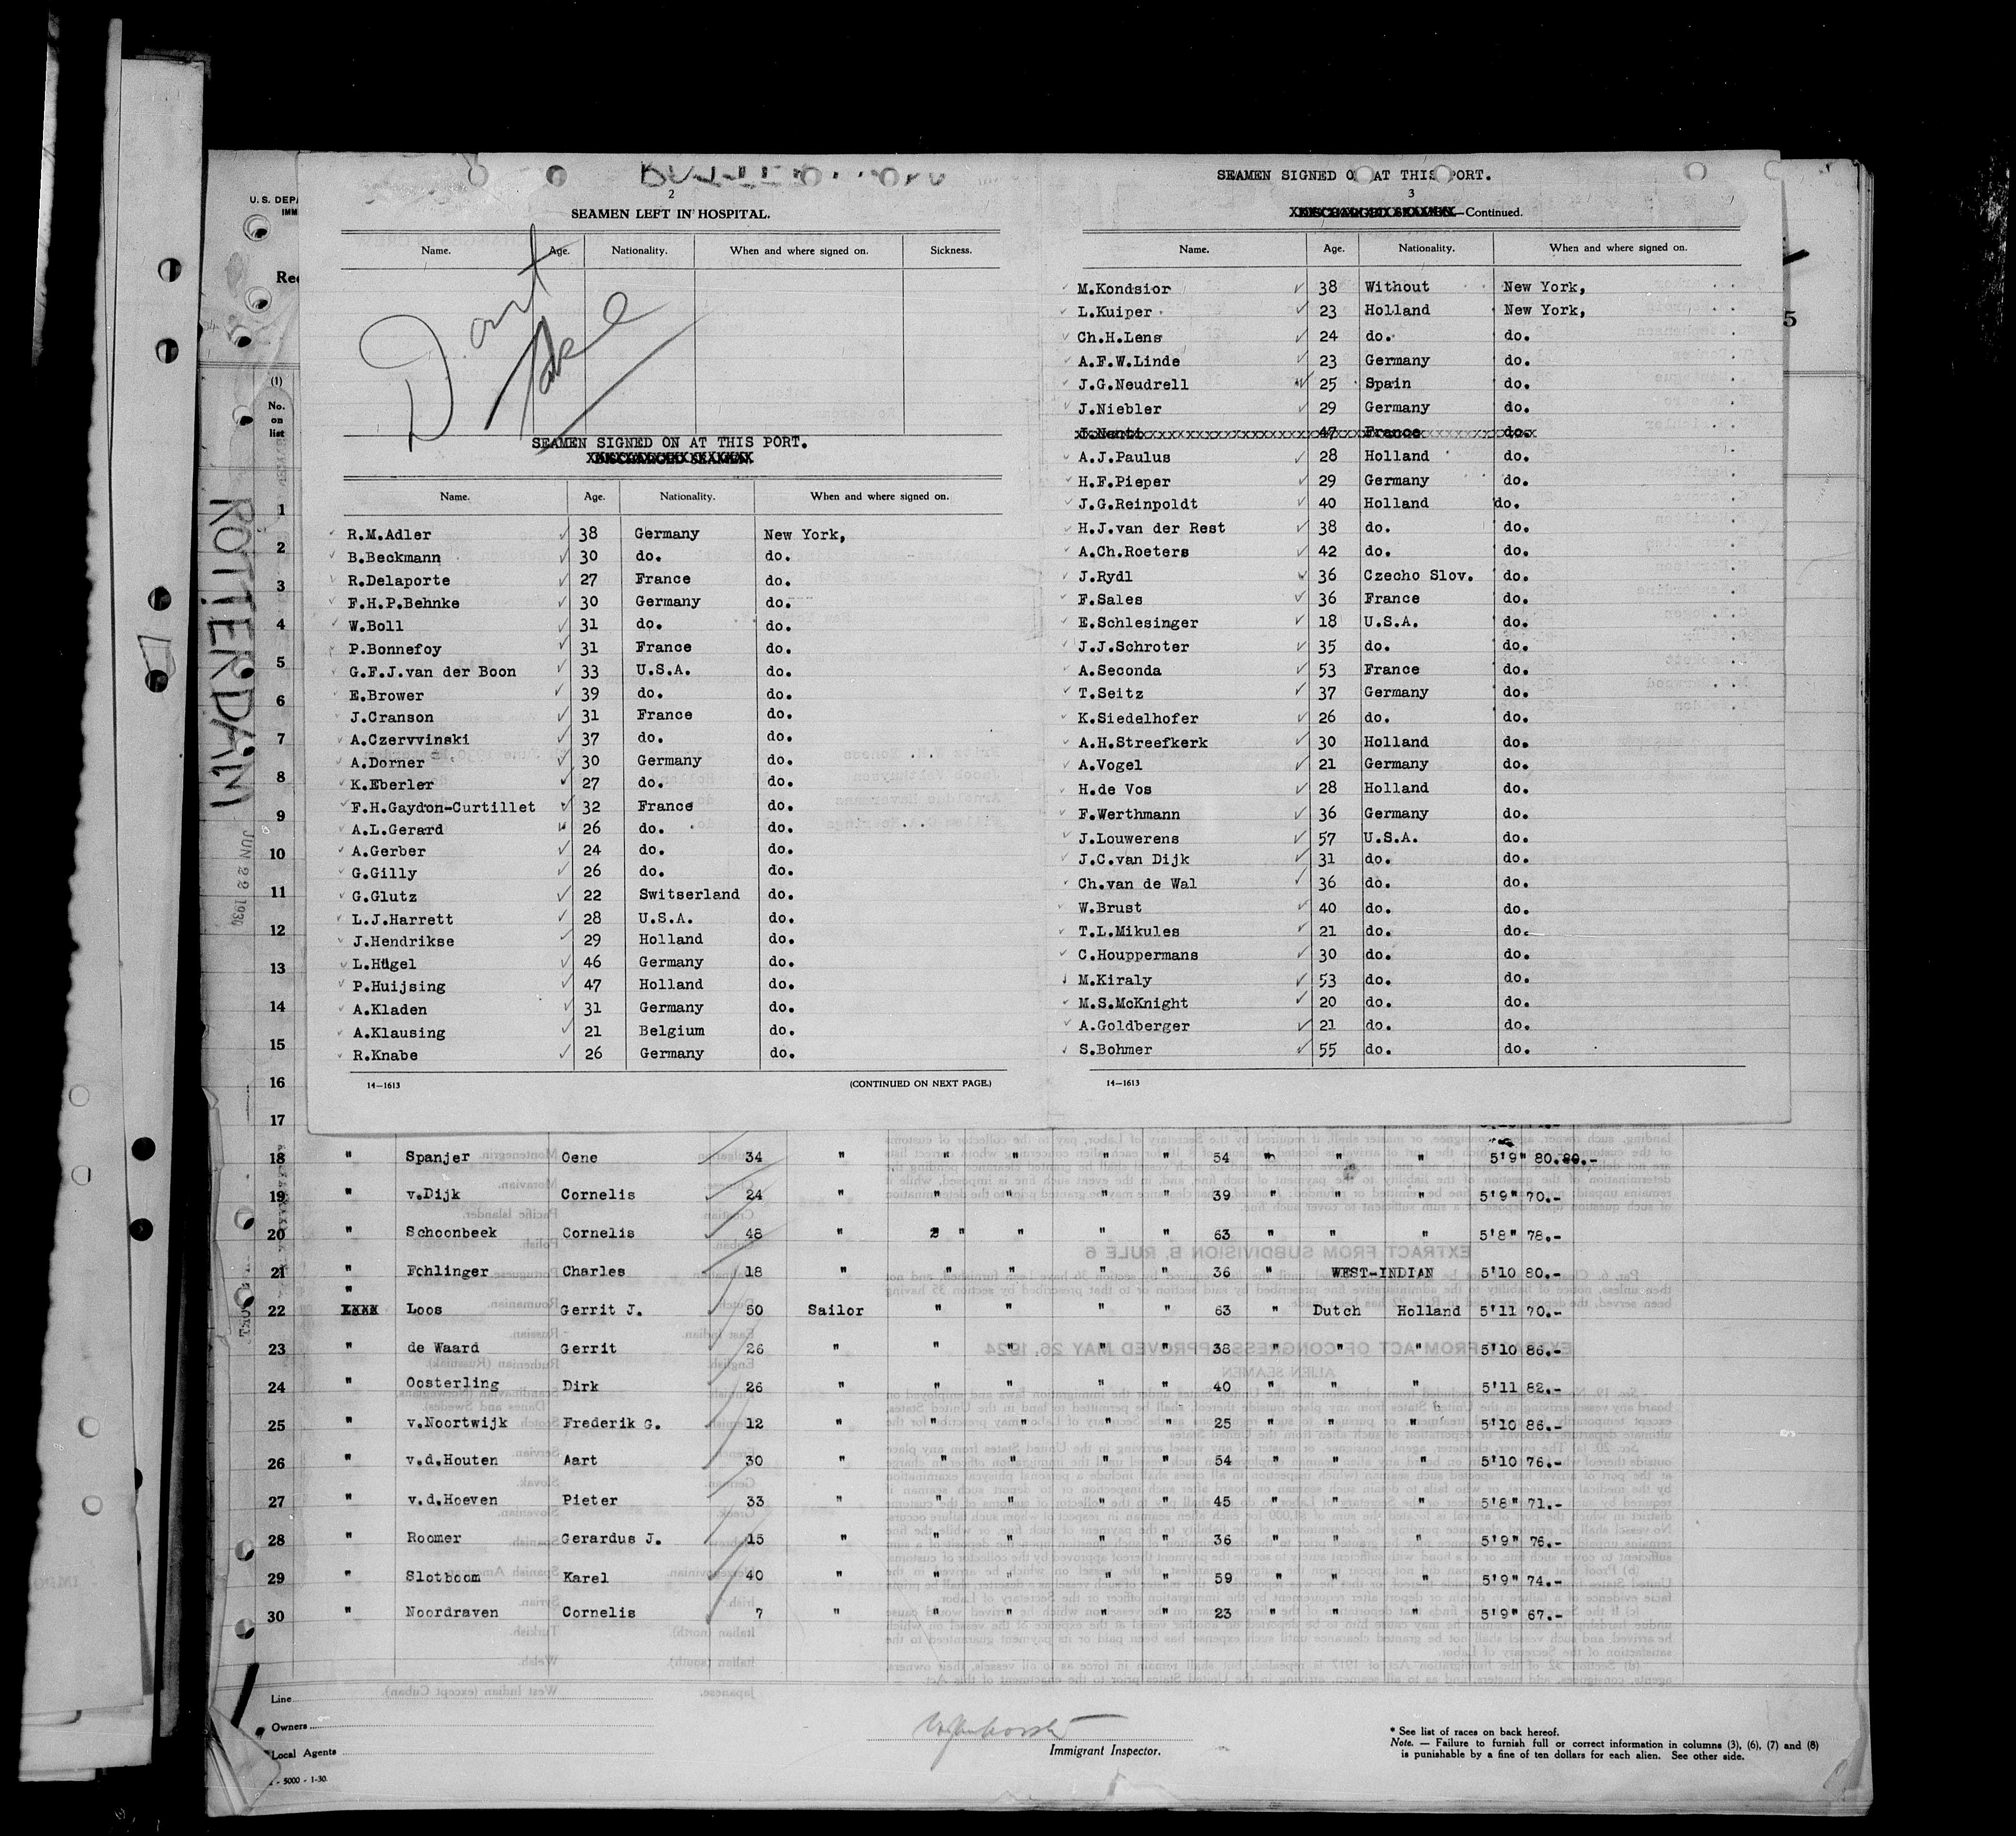 U.S. DEPA
IMM
Rec
(1)
No.
on
list
ROTTERDAM
JUN 22 1930
5
2
SEAMEN LEFT IN HOSPITAL.
Name. Age. Nationality. When and where signed on. Sickness.
Dont
take
SEAMEN SIGNED ON AT THIS PORT.
Name. Age. Nationality. When and where signed on.
R.M.Adler 38 Germany New York,
B.Beckmann 30 do. do.
R.Delaporte 27 France do.
F.H.P.Behnke 30 Germany do.
W.Boll 31 do. do.
P.Bonnefoy 31 France do.
G.F.J.van der Boon 33 U.S.A. do.
E.Brower 39 do. do.
J.Cranson 31 France do.
A.Czervvinski 37 do. do.
A.Dorner 30 Germany do.
K.Eberler 27 do. do.
F.H.Gaydon-Curtillet 32 France do.
A.L.Gerard 26 do. do.
A.Gerber 24 do. do.
G.Gilly 26 do. do.
G.Glutz 22 Switserland do.
L.J.Harrett 28 U.S.A. do.
J.Hendrikse 29 Holland do.
L.Hügel 46 Germany do.
P.Huijsing 47 Holland do.
A.Kladen 31 Germany do.
A.Klausing 21 Belgium do.
R.Knabe 26 Germany do.
14—1613 (CONTINUED ON NEXT PAGE.)
SEAMEN SIGNED O AT THIS PORT.
3
DISCHARGED SEAMEN—Continued.
Name. Age. Nationality. When and where signed on.
M.Kondsior 38 Without New York,
L.Kuiper 23 Holland New York,
Ch.H.Lens 24 do. do.
A.F.W.Linde 23 Germany do.
J.G.Neudrell 25 Spain do.
J.Niebler 29 Germany do.
J.Nenti 47 France do.
A.J.Paulus 28 Holland do.
H.F.Pieper 29 Germany do.
J.G.Reinpoldt 40 Holland do.
H.J.van der Rest 38 do. do.
A.Ch.Roeters 42 do. do.
J.Rydl 36 Czecho Slov. do.
F.Sales 36 France do.
E.Schlesinger 18 U.S.A. do.
J.J.Schroter 35 do. do.
A.Seconda 53 France do.
T.Seitz 37 Germany do.
K.Siedelhofer 26 do. do.
A.H.Streefkerk 30 Holland do.
A.Vogel 21 Germany do.
H.de Vos 28 Holland do.
F.Werthmann 36 Germany do.
J.Louwerens 57 U.S.A. do.
J.C.van Dijk 31 do. do.
Ch.van de Wal 36 do. do.
W.Brust 40 do. do.
T.L.Mikules 21 do. do.
C.Houppermans 30 do. do.
M.Kiraly 53 do. do.
M.S.McKnight 20 do. do.
A.Goldberger 21 do. do.
S.Bohmer 55 do. do.
14—1613
1
2
3
4
5
6
7
8
9
10
11
12
13
14
15
16
17
18 " Spanjer Oene 34 " " " " " 54 " " " 5'9" 80.-
19 " v.Dijk Cornelis 24 " " " " " 39 " " " 5'9" 70.-
20 " Schoonbeek Cornelis 48 " " " " " 63 " " " 5'8" 78.-
21 " Fohlinger Charles 18 " " " " " 36 " WEST-INDIAN 5'10 80.-
22 " Loos Gerrit J. 50 Sailor " " " " 63 " Dutch Holland 5'11 70.-
23 " de Waard Gerrit 26 " " " " " 38 " " " 5'10 86.-
24 " Oosterling Dirk 26 " " " " " 40 " " " 5'11 82.-
25 " v.Noortwijk Frederik G. 12 " " " " " 25 " " " 5'10 86.-
26 " v.d.Houten Aart 30 " " " " " 54 " " " 5'10 76.-
27 " v.d.Hoeven Pieter 33 " " " " " 45 " " " 5'8" 71.-
28 " Roomer Gerardus J. 15 " " " " " 36 " " " 5'9" 76.-
29 " Slotboom Karel 40 " " " " " 59 " " " 5'9" 74.-
30 " Noordraven Cornelis 7 " " " " " 23 " " " 5'9" 67.-
Line
Owners
Local Agents
- 5000 - 1-30
Immigrant Inspector.
* See list of races on back hereof.
Note. — Failure to furnish full or correct information in columns (3), (6), (7) and (8)
is punishable by a fine of ten dollars for each alien. See other side.